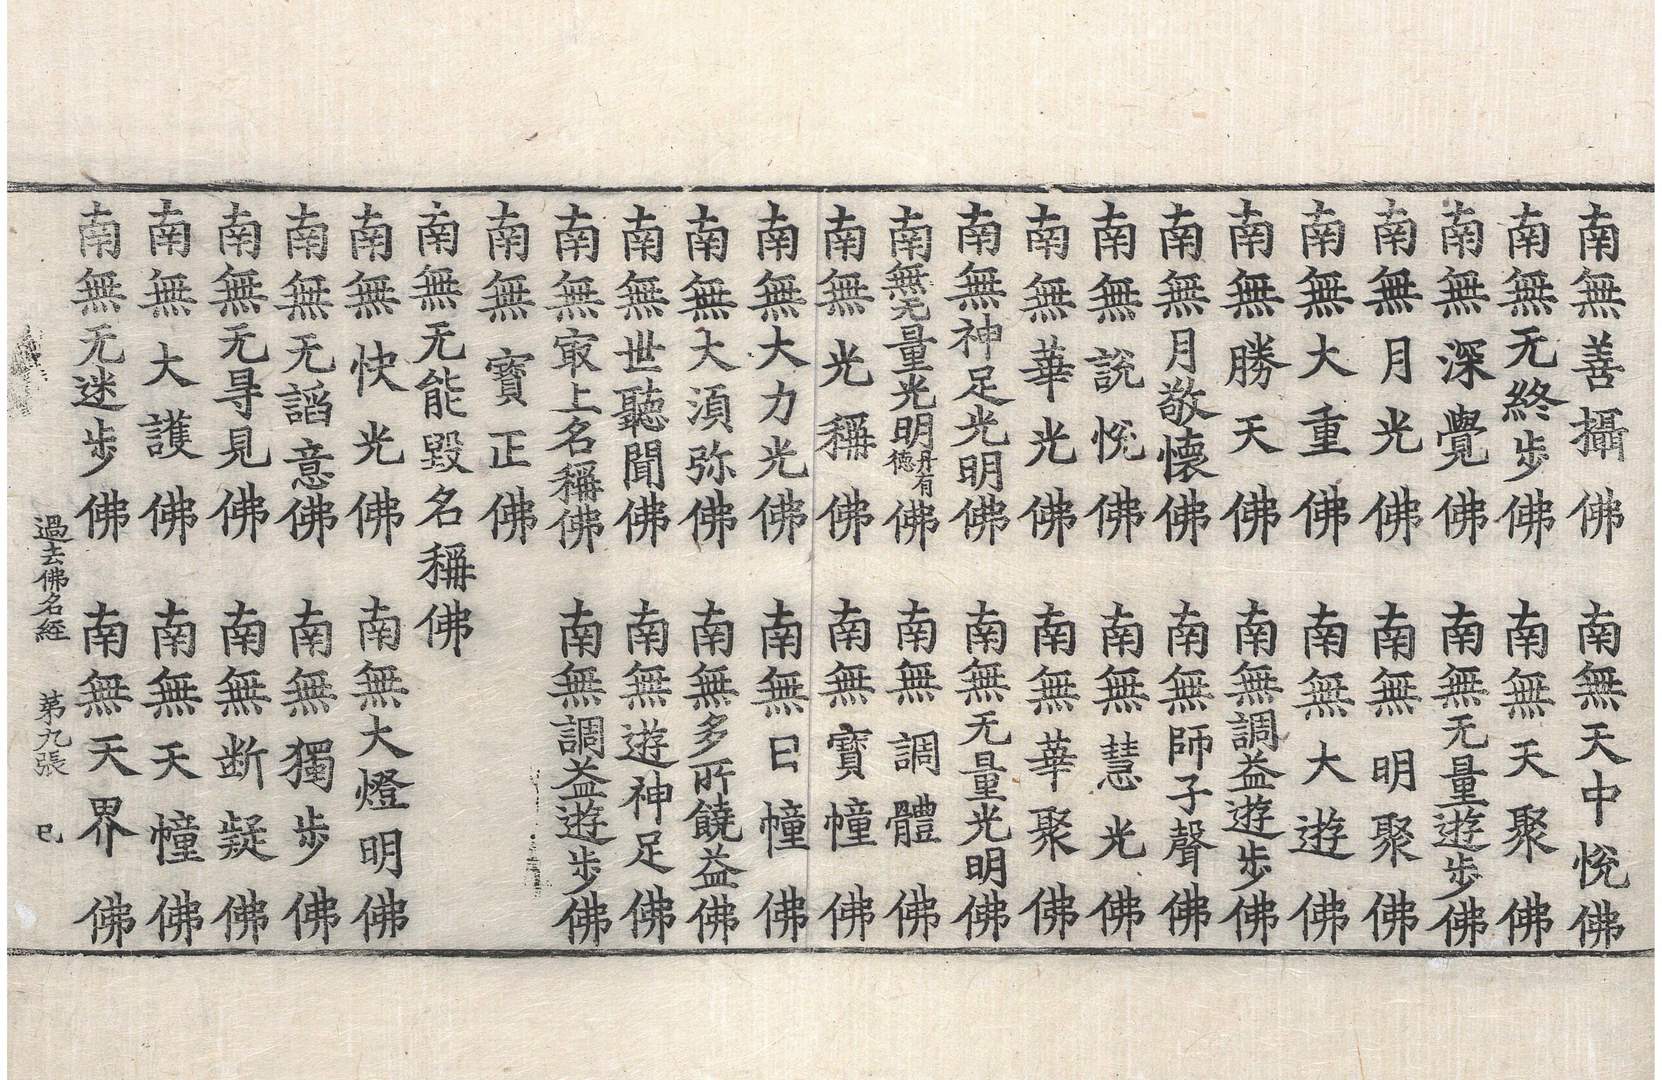 南無善攝佛 南無天中悅佛
南無无終步佛 南無天聚佛
南無深覺佛 南無无量遊步佛
南無月光佛 南無明聚佛
南無大重佛 南無大遊佛
南無勝天佛 南無調益遊步佛
南無月敬懷佛 南無師子聲佛
南無說悅佛 南無慧光佛
南無華光佛 南無華聚佛
南無神足光明佛 南無无量光明佛
南無无量光明丹有德佛 南無調體佛
南無光稱佛 南無寶幢佛
南無大力光佛 南無日幢佛
南無大湏弥佛 南無多所饒益佛
南無世聽聞佛 南無遊神足佛
南無㝡上名稱佛 南無調益遊步佛
南無寶正佛
南無无能毀名稱佛
南無快光佛 南無大燈明佛
南無无謟意佛 南無獨步佛
南無无㝵見佛 南無断疑佛
南無大護佛 南無天幢佛
南無无迷步佛 南無天界佛
過去佛名經 苐九張 巳